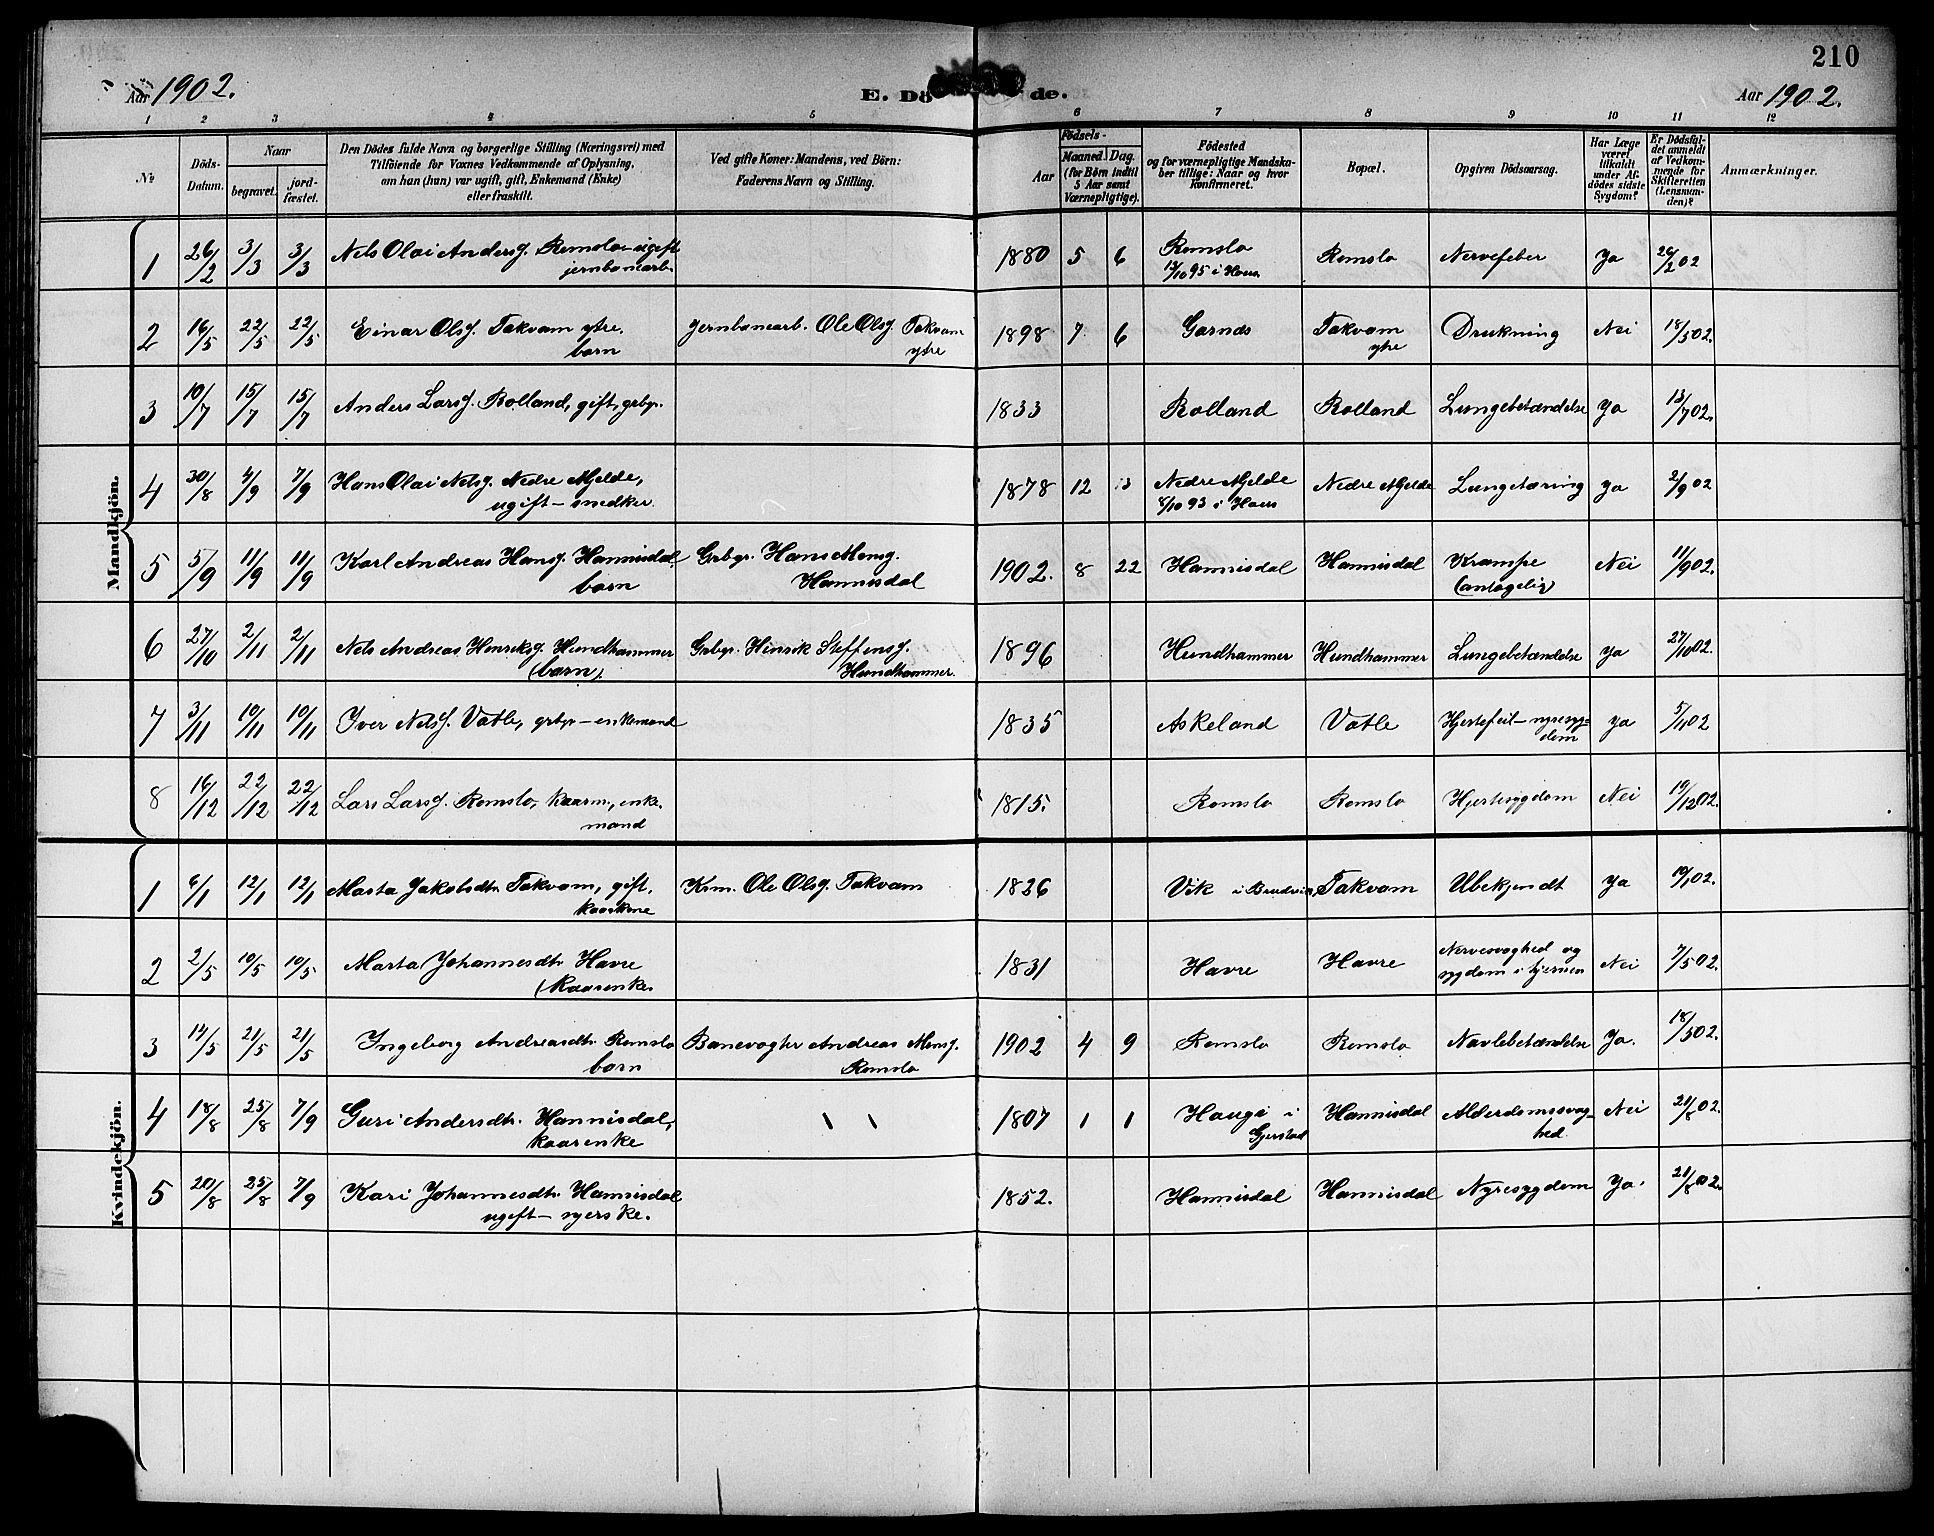 210
Aar 1902. E. Dö de. Aar 1902.
1 2 3 4 5 6 7 8 9 10 11 12
№
Döds-Datum.
Naar begravet. jordfæstet.
Den Dödes fulde Navn og borgerlige Stilling (Næringsvei) med
Tilföiende for Voxnes Vedkommende af Oplysning,
om han (hun) var ugift, gift, Enkemand (Enke)
eller fraskilt.
Ved gifte Koner: Mandens, ved Börn:
Faderens Navn og Stilling.
Födsels-
Aar Maaned. Dag.
(for Börn indtil
5 Aar samt
Værnepligtige).
Födested
og for værnepligtige Mandska-
ber tillige: Naar og hvor
konfirmeret.
Bopæl.
Opgiven Dödsaarsag.
Har Læge
været
tilkaldt
under Af-
dödes sidste
Sygdom?
Er Dödsfal-
det anmeldt
af Vedkom-
mende for
Skifteretten
(Lensman-
den)?
Anmærkninger.
Mandkjön.
1 26/2 3/3 3/3 Nels Olai Andersſ. Romslo - ugift 1880 5 6 Romslo Romslo Nervefeber Ja 26/2 02
jernbanearb. 13/10 95 i Haus
2 16/5 22/5 22/5 Einar Olsſ. Takvam ytre, Jernbanearb. Ole Olsſ. Takvam 1898 7 6 Garnæs Takvam Drukning Nei 18/5 02.
barn ytre ytre
3 10/7 15/7 15/7 Anders Larsſ. Rolland, gift, grbgr. 1833 Rolland Rolland Lungebetændelse Ja 13/7 02.
4 30/8 4/9 7/9 Hans Olai Nelsſ. Nedre Mjelde, 1878 12 13 Nedre Mjelde Nedre Mjelde Lungetæring Ja 2/9 02
ugift - snedker. 8/10 93 i Haus
5 5/9 11/9 11/9 Karl Andreas Hansſ. Hannisdal, Grbgr. Hans Monsſ. 1902. 8 22 Hannisdal Hannisdal Krampe Nei 11/9 02.
barn Hannisdal (antagelig)
6 27/10 2/11 2/11 Nels Andreas Henriksſ. Hundhammer Grbgr. Hinrik Steffensſ. 1896 Hundhammer Hundhammer Lungebetændelse Ja 27/10 02.
(barn). Hundhammer.
7 3/11 10/11 10/11 Iver Nelsſ. Vatle, grbgr - enkemand 1835 Askeland Vatle Hjertefeil - nyresyg- Ja 5/11 02
dom
8 16/12 22/12 22/12 Lars Larsſ. Romslo, kaarm., enke- 1815. Romslo Romslo Hjertesygdom Nei 19/12 02.
mand
Kvindekjön.
1 6/1 12/1 12/1 Marta Jakobsdtr Takvam, gift, Krm. Ole Olsſ. Takvam 1826 Vik i Bruvik Takvam Ubekjendt Ja 10/1 02.
kaarkone
2 2/5 10/5 10/5 Marta Johannesdtr Havre 1831 Havre Havre Nervesvaghed og Nei 7/5 02.
kaarenke. sygdom i hjernen
3 14/5 21/5 21/5 Ingeborg Andreasdtr. Romslo Banevogter Andreas Monsſ. 1902 4 9 Romslo Romslo Navlebetændelse Ja. 18/5 02.
barn Romslo
4 18/8 25/8 7/9 Guri Andersdtr. Hannisdal, 1807 Haugi i Hannisdal Alderdomssvag- Nei 21/8 02.
kaarenke Gjerstad hed
5 20/8 25/8 7/9 Kari Johannesdtr. Hannisdal 1852. Hannisdal Hannisdal Nyresygdom Ja. 21/8 02.
ugift - syerske.